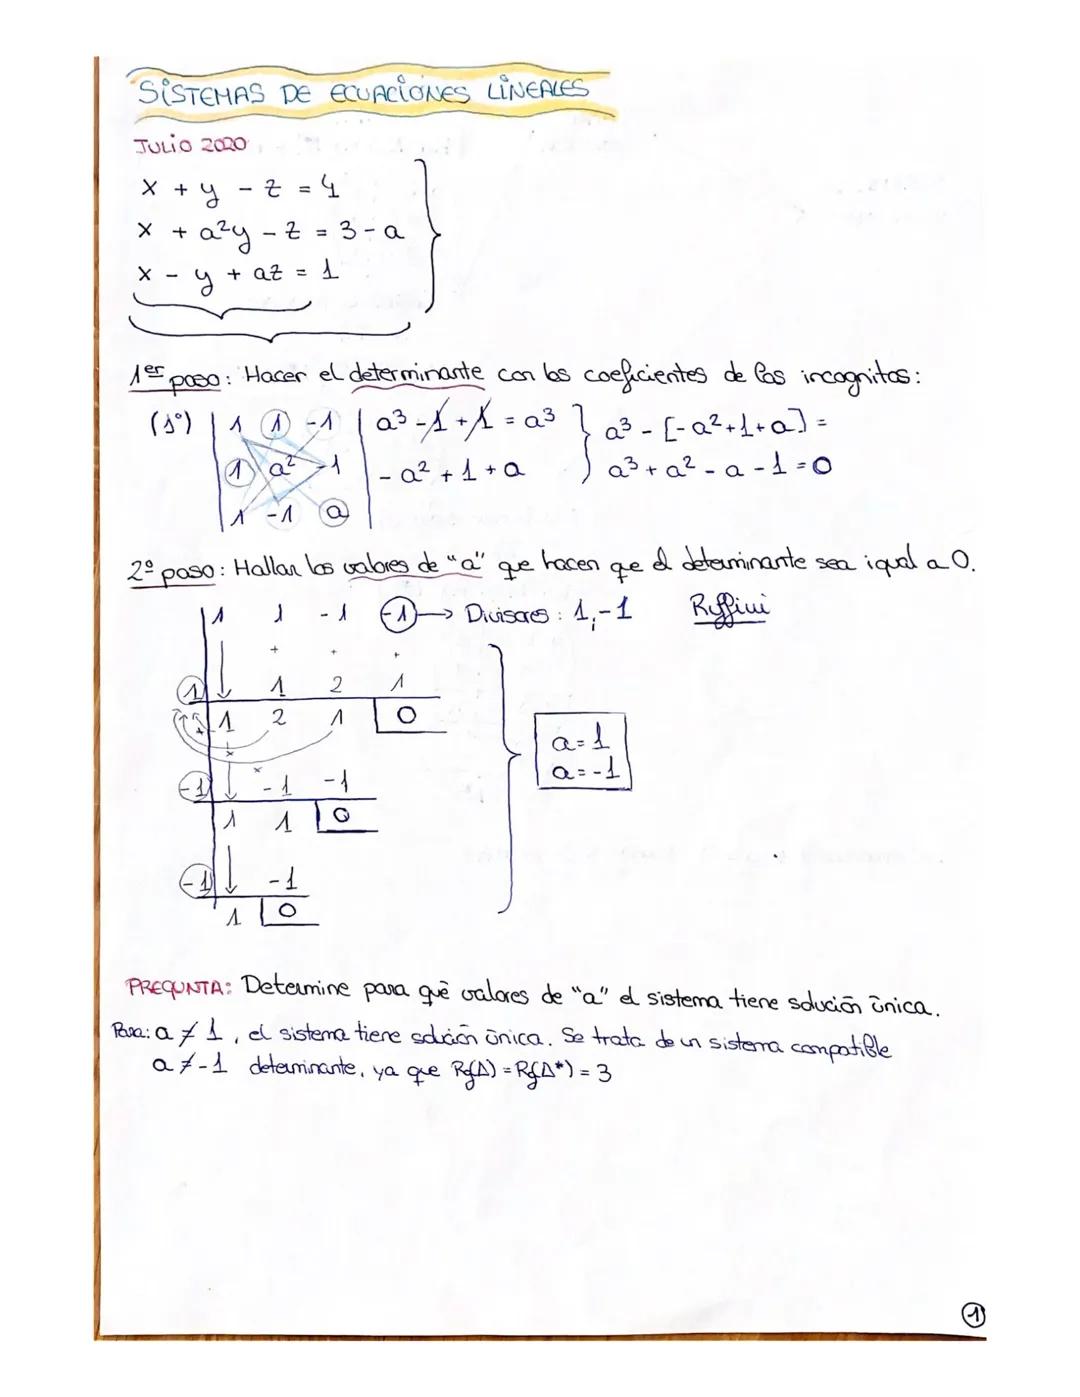 SISTEMAS DE ECUACIONES LINEALES
JULIO 2020
x + y - z = 4
x + a²y - z = 3 - a
x - y + az = 1
1er paso: Hacer el determinante con los coeficientes de las incognitas:
(1º) | 1 1 -1 | a³ - 1 + 1 = a³ } a³ - [-a² + 1 + a] =
1 a² -1 | - a² + 1 + a ) a³ + a² - a - 1 = 0
1 -1 a
2º paso: Hallar los valores de "a" que hacen que el determinante sea igual a 0.
1 1 -1 -1 → Divisores: 1, -1 Ruffini
+ + +
1 1 2 1
1 2 1 0
a = 1
a = -1
-1 -1 -1
1 1 0
-1 -1
1 0
PREGUNTA: Determine para qué valores de "a" el sistema tiene solución única.
Para: a ≠ 1, el sistema tiene solución única. Se trata de un sistema compatible
a ≠ -1 determinante, ya que Rg(A) = Rg(A*) = 3
1